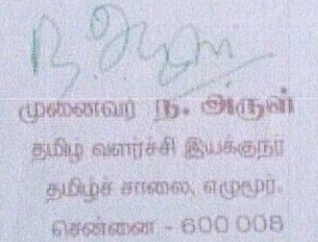 முனைவர் ந. அருள்
தமிழ் வளர்ச்சி இயக்குநர்
தமிழ்ச் சாலை, எழுமூர்,
சென்னை - 600 008